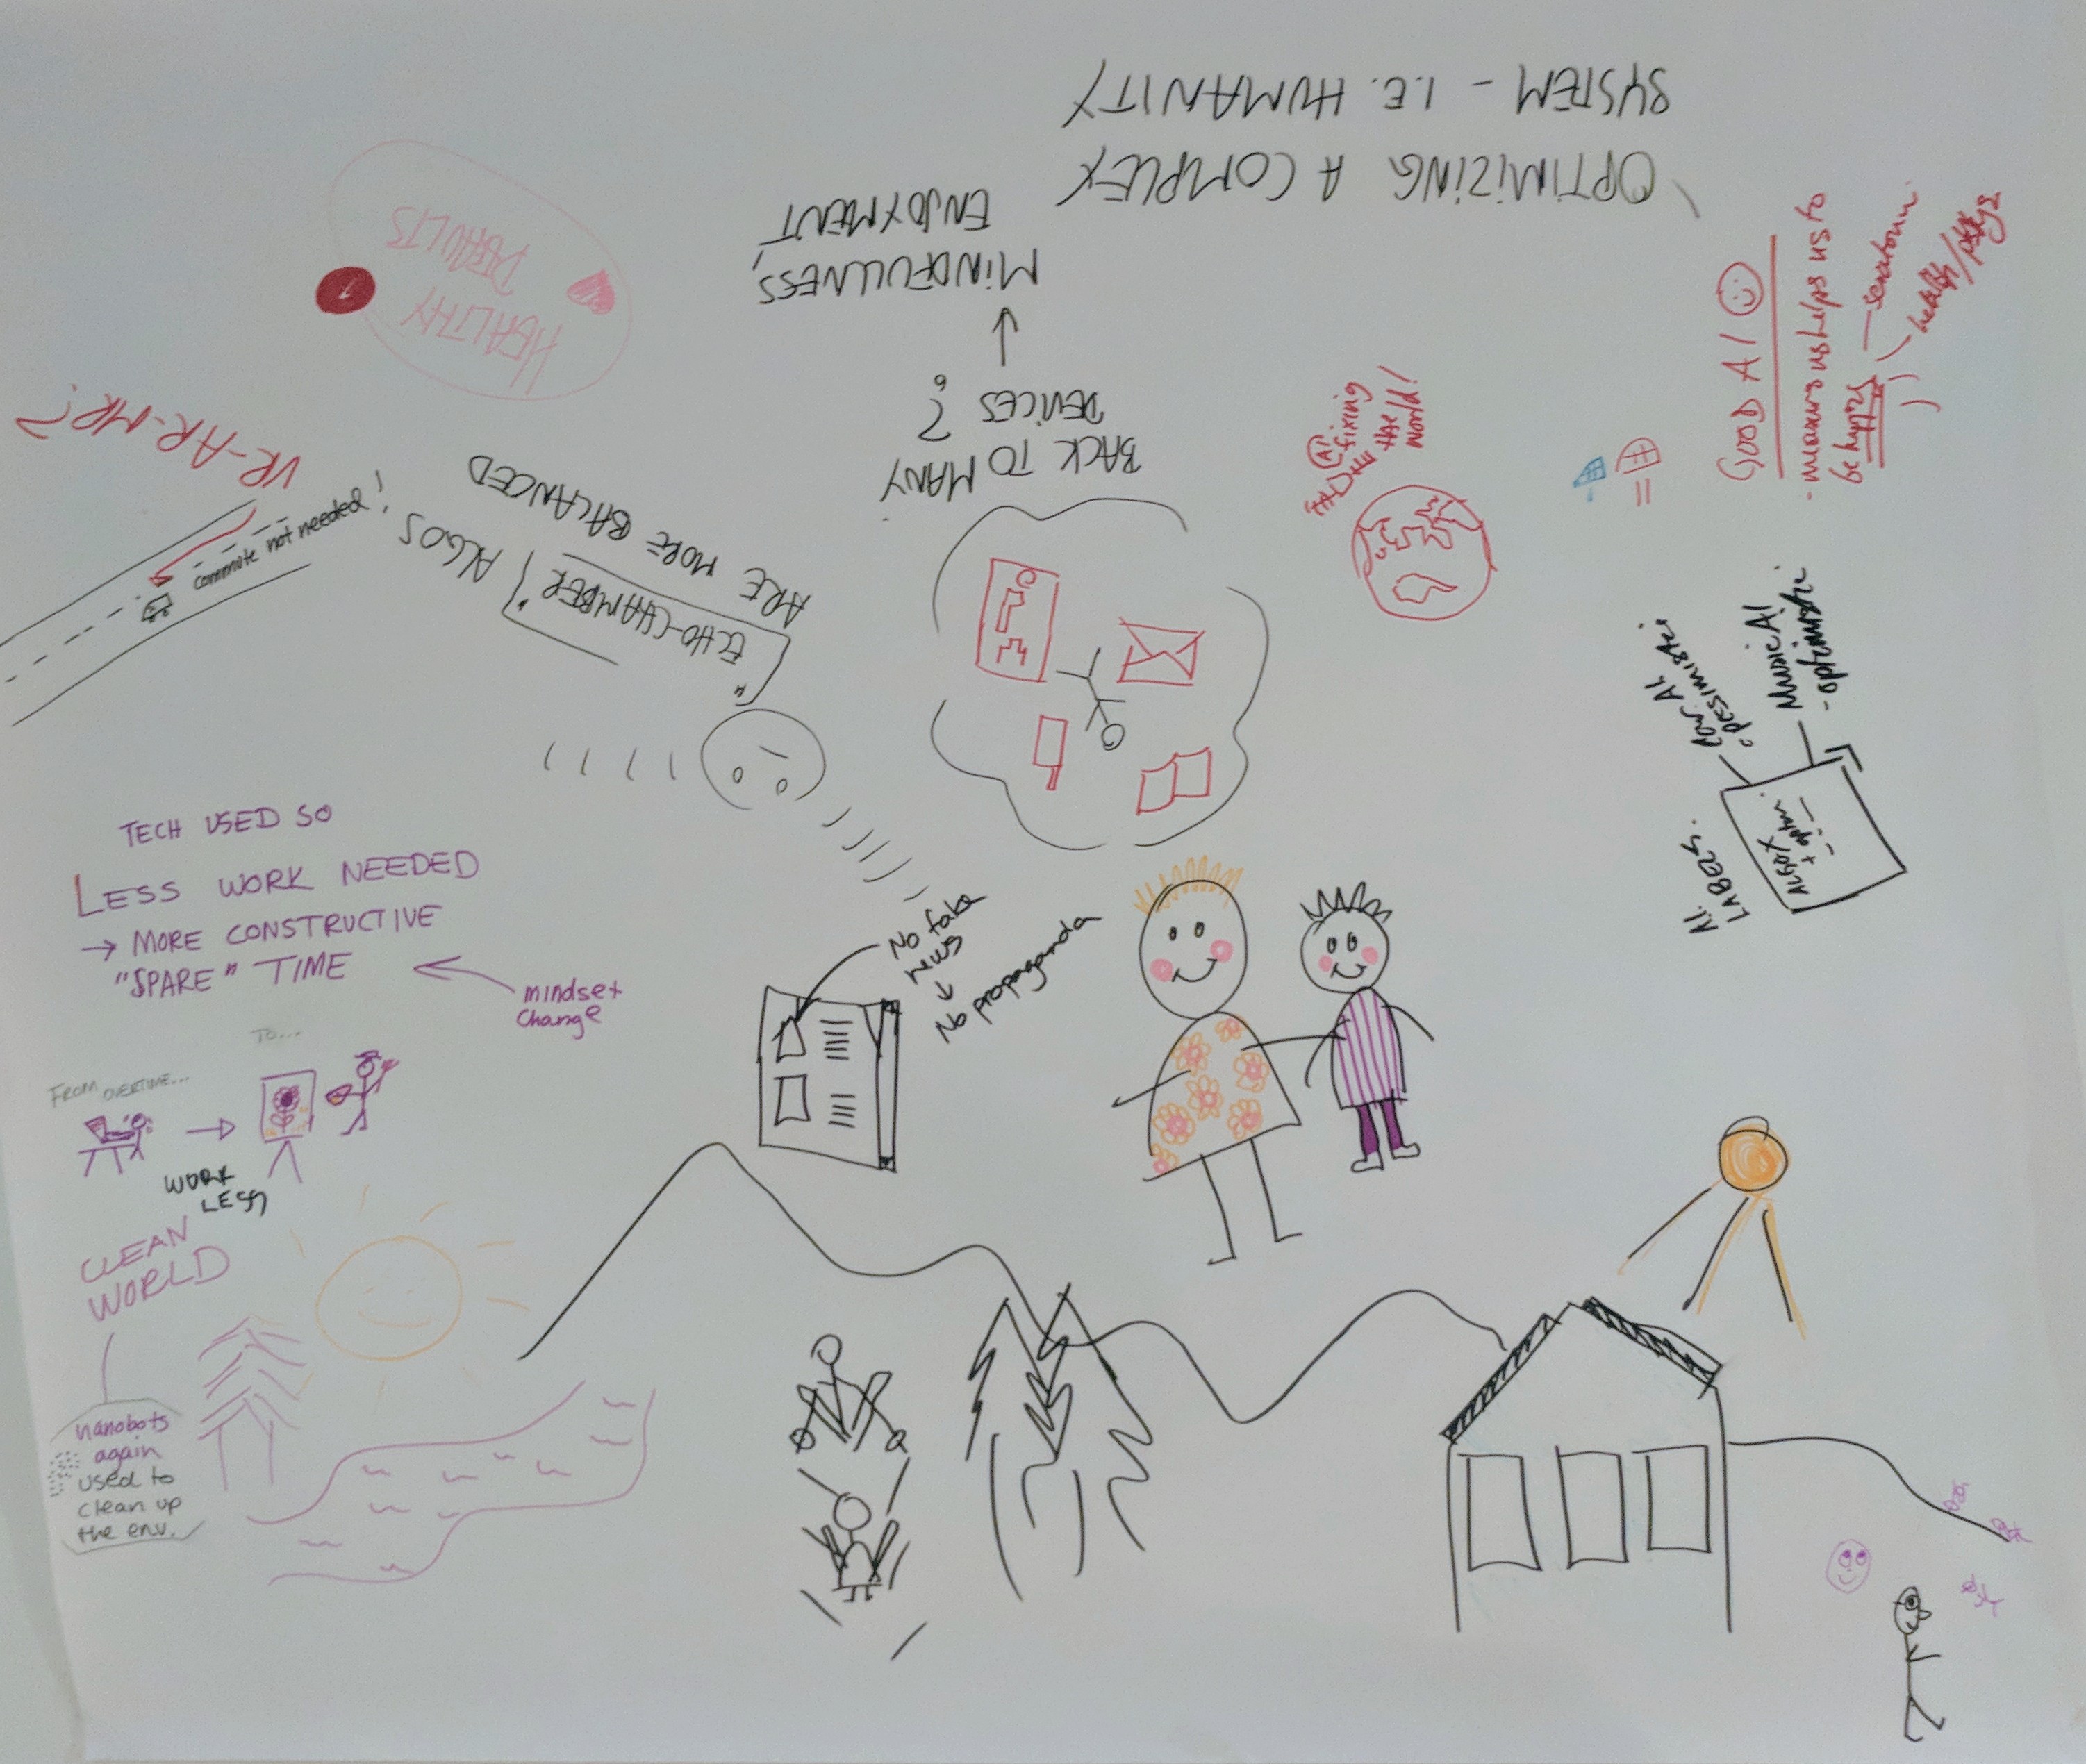 OPTIMIZING A COMPLEX
SYSTEM - I.E. HUMANITY
BACK TO MANY
DEVICES?
MINDFULLNESS,
ENJOYMENT
HEALTHY
DEFAULTS
1
VR-AR-MR?
commute not needed!
"ECHO-CHAMBER" ALGOS
ARE MORE BALANCED
AI
fixing
the
world!
GOOD AI
- measures us helps us to
be happy
- seratonin
- health/
AI.
LABELS.
ALGOX
+ optim
AI
pessimistic
Music AI
- optimistic
TECH USED SO
LESS WORK NEEDED
→ MORE CONSTRUCTIVE
"SPARE" TIME
mindset
change
FROM OVERTIME...
TO...
WORK
LESS
No fake
news
↓
No propaganda
CLEAN
WORLD
nanobots
again
used to
clean up
the env.